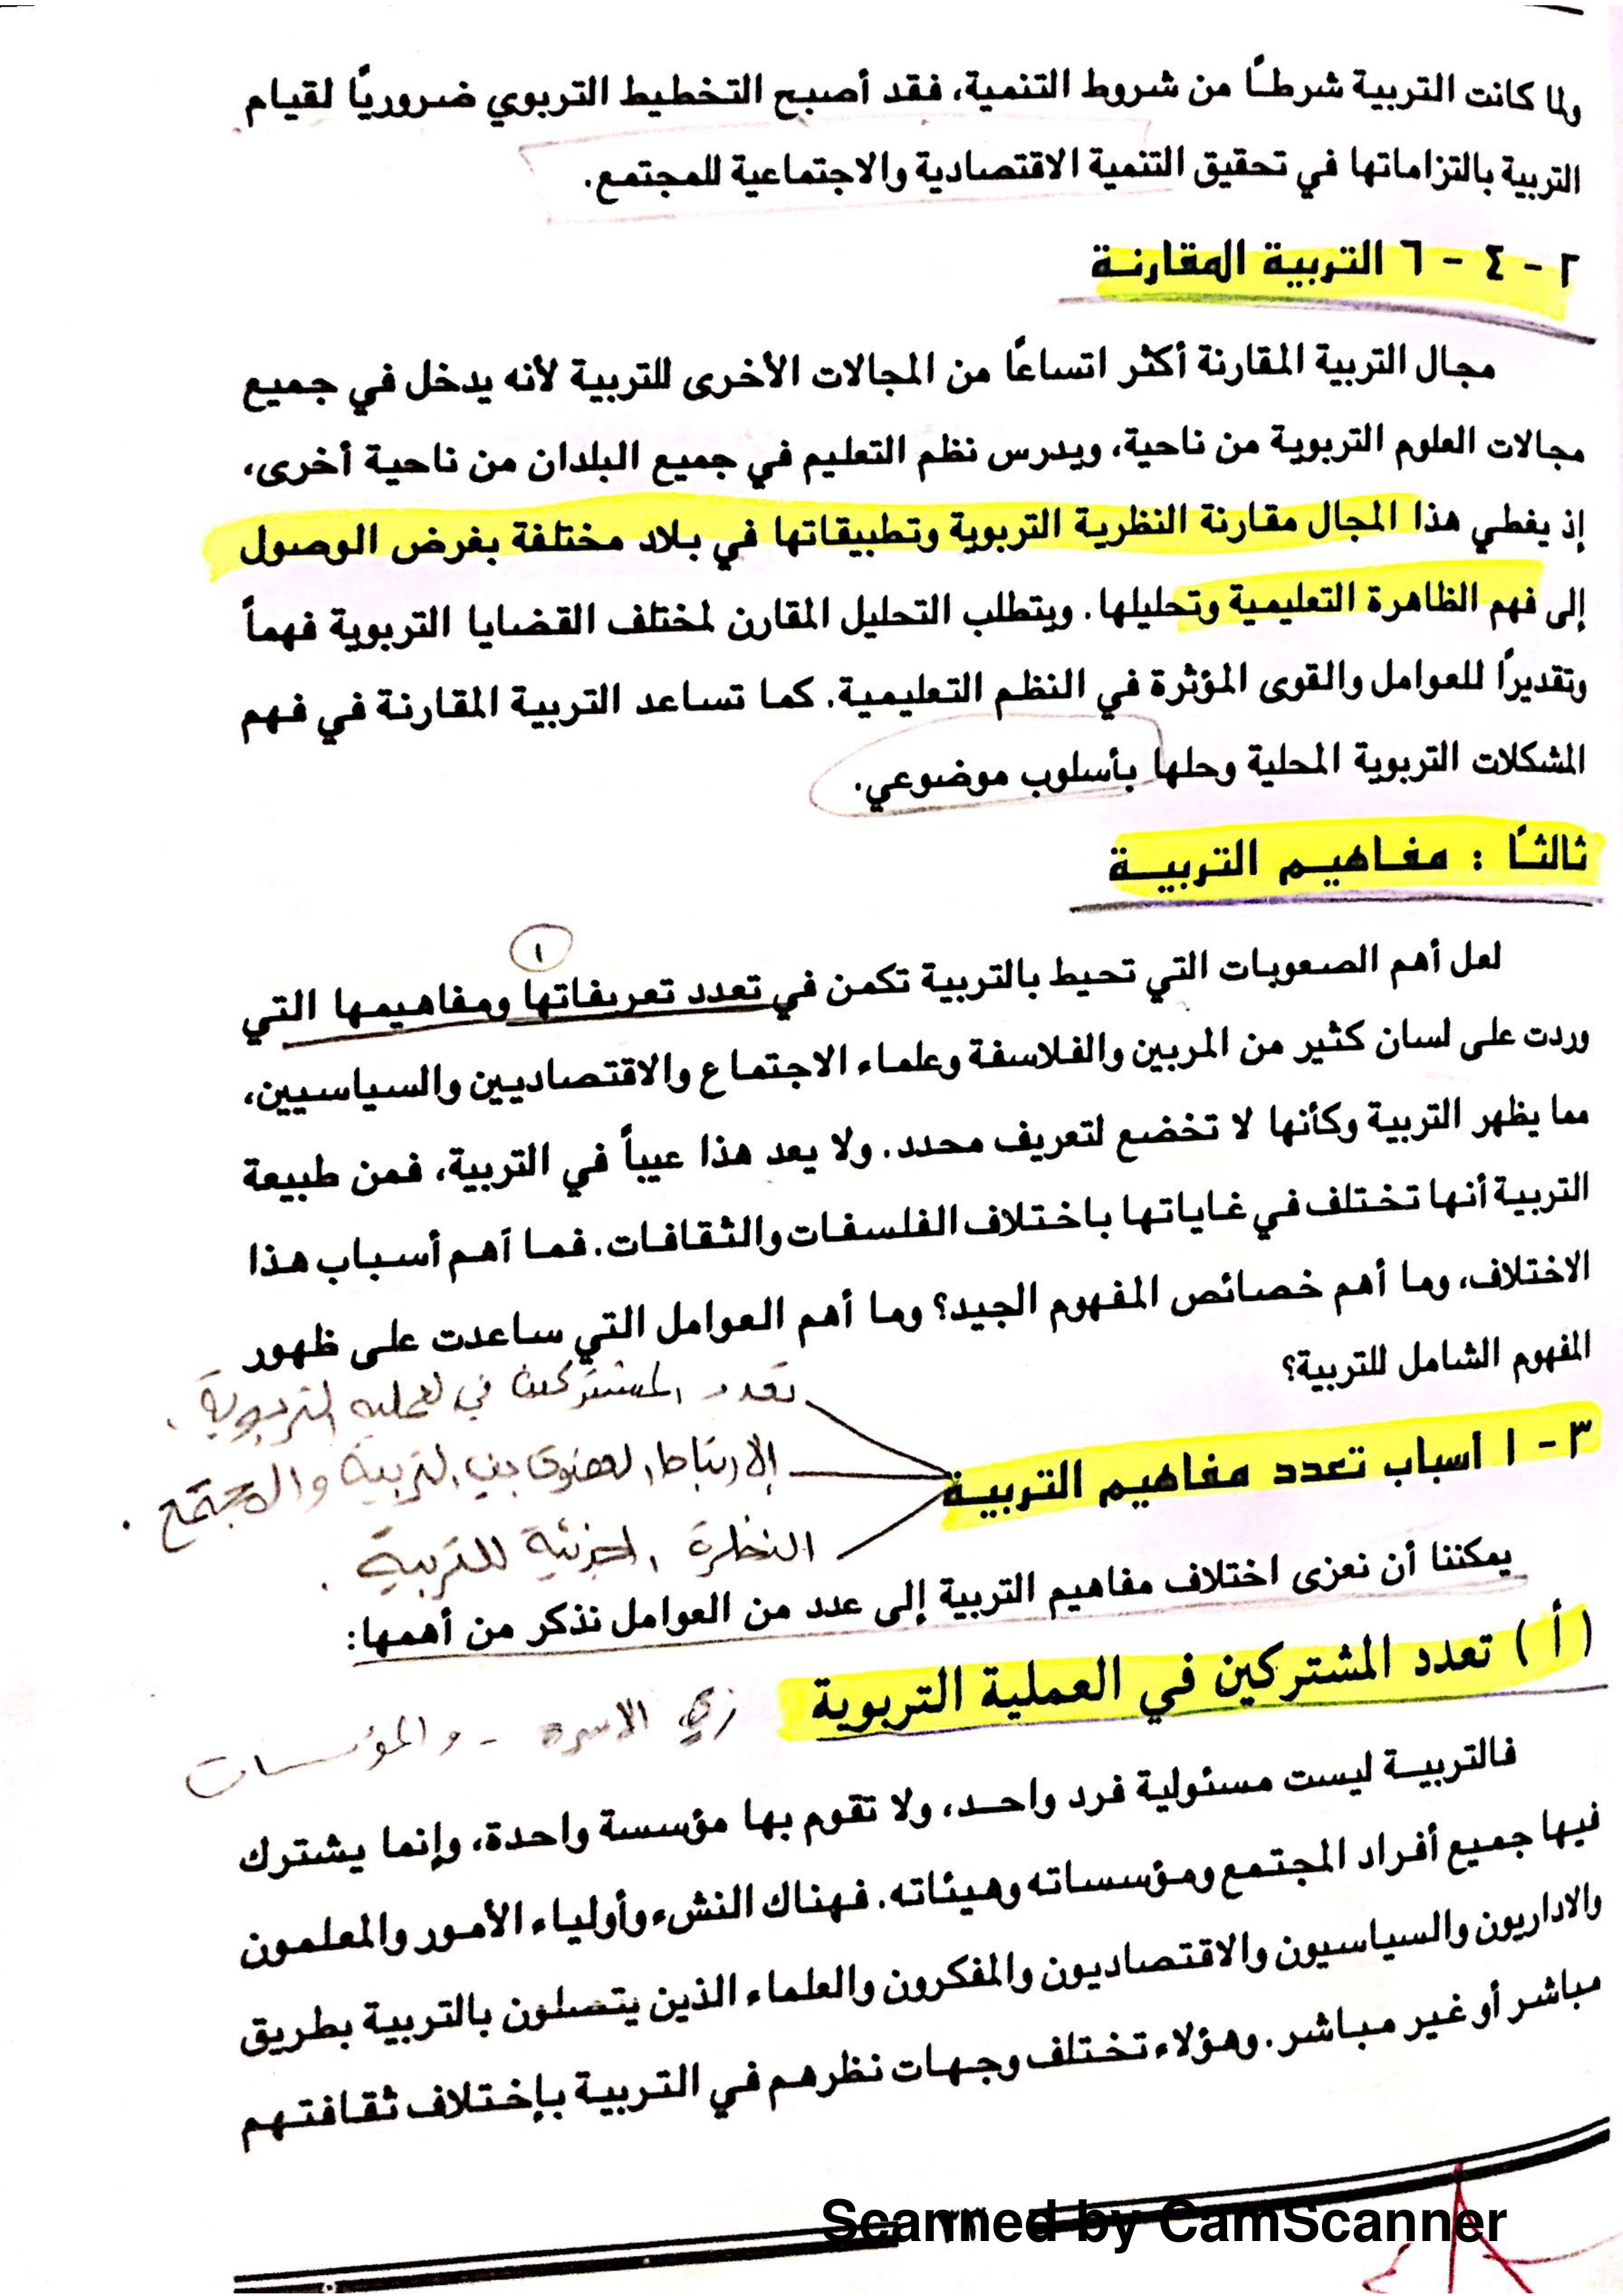 ولما كانت التربية شرطًا من شروط التنمية، فقد أصبح التخطيط التربوي ضروريًا لقيام
التربية بالتزاماتها في تحقيق التنمية الاقتصادية والاجتماعية للمجتمع.
٢ - ٤ - ٦ التربية المقارنة
مجال التربية المقارنة أكثر اتساعًا من المجالات الأخرى للتربية لأنه يدخل في جميع
مجالات العلوم التربوية من ناحية، ويدرس نظم التعليم في جميع البلدان من ناحية أخرى،
إذ يغطي هذا المجال مقارنة النظرية التربوية وتطبيقاتها في بلاد مختلفة بغرض الوصول
إلى فهم الظاهرة التعليمية وتحليلها. ويتطلب التحليل المقارن لمختلف القضايا التربوية فهماً
وتقديرًا للعوامل والقوى المؤثرة في النظم التعليمية. كما تساعد التربية المقارنة في فهم
المشكلات التربوية المحلية وحلها بأسلوب موضوعي.
ثالثًا : مفاهيم التربية
١
لعل أهم الصعوبات التي تحيط بالتربية تكمن في تعدد تعريفاتها ومفاهيمها التي
وردت على لسان كثير من المربين والفلاسفة وعلماء الاجتماع والاقتصاديين والسياسيين،
مما يظهر التربية وكأنها لا تخضع لتعريف محدد. ولا يعد هذا عيباً في التربية، فمن طبيعة
التربية أنها تختلف في غاياتها باختلاف الفلسفات والثقافات. فما أهم أسباب هذا
الاختلاف، وما أهم خصائص المفهوم الجيد؟ وما أهم العوامل التي ساعدت على ظهور
المفهوم الشامل للتربية؟
تعدد المشتركين في العملية التربوية .
٣ - ١ أسباب تعدد مفاهيم التربية
الارتباط العضوي بين التربية والمجتمع .
النظرة الجزئية للتربية .
يمكننا أن نعزى اختلاف مفاهيم التربية إلى عدد من العوامل نذكر من أهمها:
( أ ) تعدد المشتركين في العملية التربوية
زي الاسرة - والمؤسسات
فالتربية ليست مسئولية فرد واحد، ولا تقوم بها مؤسسة واحدة، وإنما يشترك
فيها جميع أفراد المجتمع ومؤسساته وهيئاته. فهناك النشء وأولياء الأمور والمعلمون
والاداريون والسياسيون والاقتصاديون والمفكرون والعلماء الذين يتصلون بالتربية بطريق
مباشر أو غير مباشر. وهؤلاء تختلف وجهات نظرهم في التربية بإختلاف ثقافتهم
Scanned by CamScanner